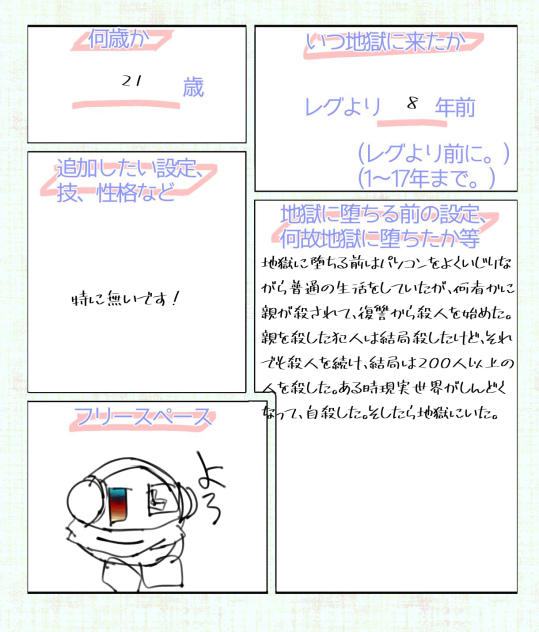 何歳か
21 歳
いつ地獄に来たか
レグより 8 年前
(レグより前に。)
(1〜17年まで。)
追加したい設定、
技、性格など
特に無いです!
地獄に堕ちる前の設定、
何故地獄に堕ちたか等
地獄に堕ちる前はパソコンをよくいじりな
がら普通の生活をしていたが、何者かに
親が殺されて、復讐から殺人を始めた。
親を殺した犯人は結局殺したけど、それ
でも殺人を続け、結局は200人以上の
人を殺した。ある時現実世界がしんどく
なって、自殺した。そしたら地獄にいた。
フリースペース
よろ